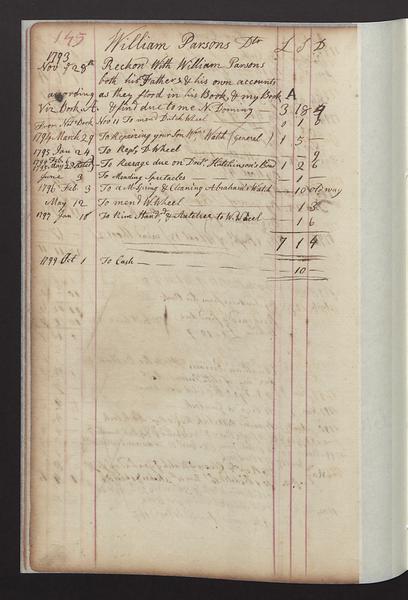 145 William Parsons Dtr £ S D
1793
Nov 28th Reckon With William Parsons
both his Father & his own accounts
according as they stood in his Book, & my Book A
Viz Book A. & find due to me N Dominy 3 18 4
Nov 11 To mend Dutch Wheel
1794 March 29 To Repairing your Son Wm Watch (general) 1 5 —
1795 Jan 24 To Wheel
To due on Hutchinson's 1 2 6
June 3 To Mending Spectacles
1796 Feb 3 To a M Spring & Cleaning Abraham's Watch — 10 old way
May 12 To mend W. Wheel 1 3
1797 Jan 18 To W. Wheel 1 6
7 1 4
1799 Oct 1 To Cash —
10 —